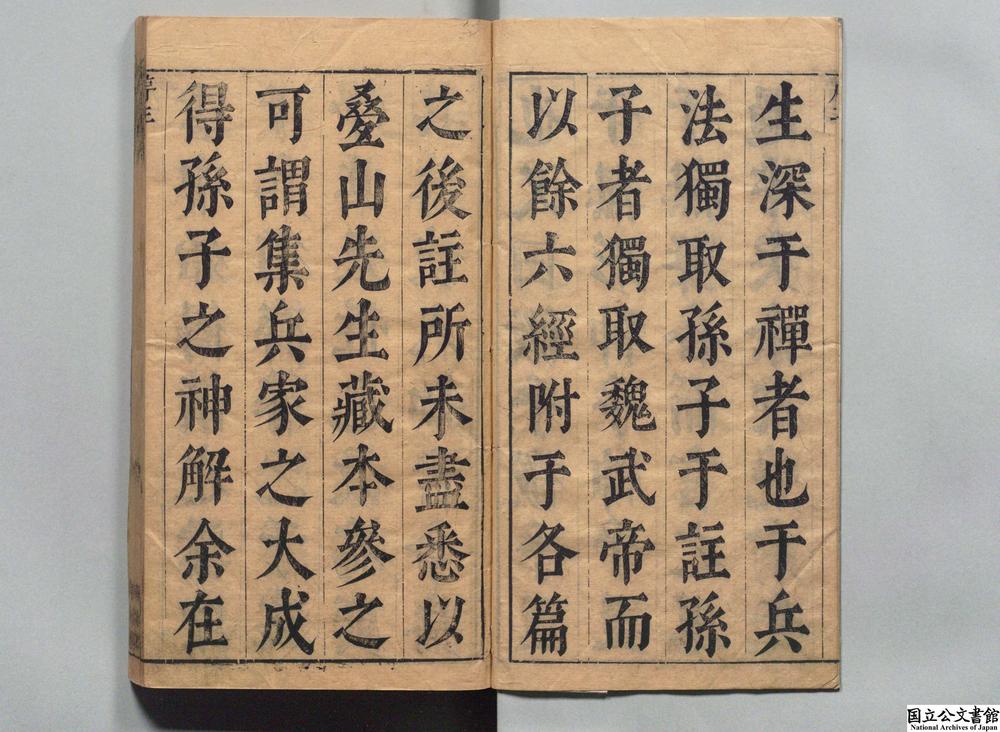 生深于禪者也于兵
法獨取孫子于註孫
子者獨取魏武帝而
以餘六經附于各篇
之後註所未盡悉以
疊山先生藏本參之
可謂集兵家之大成
得孫子之神解余在
国立公文書館
National Archives of Japan